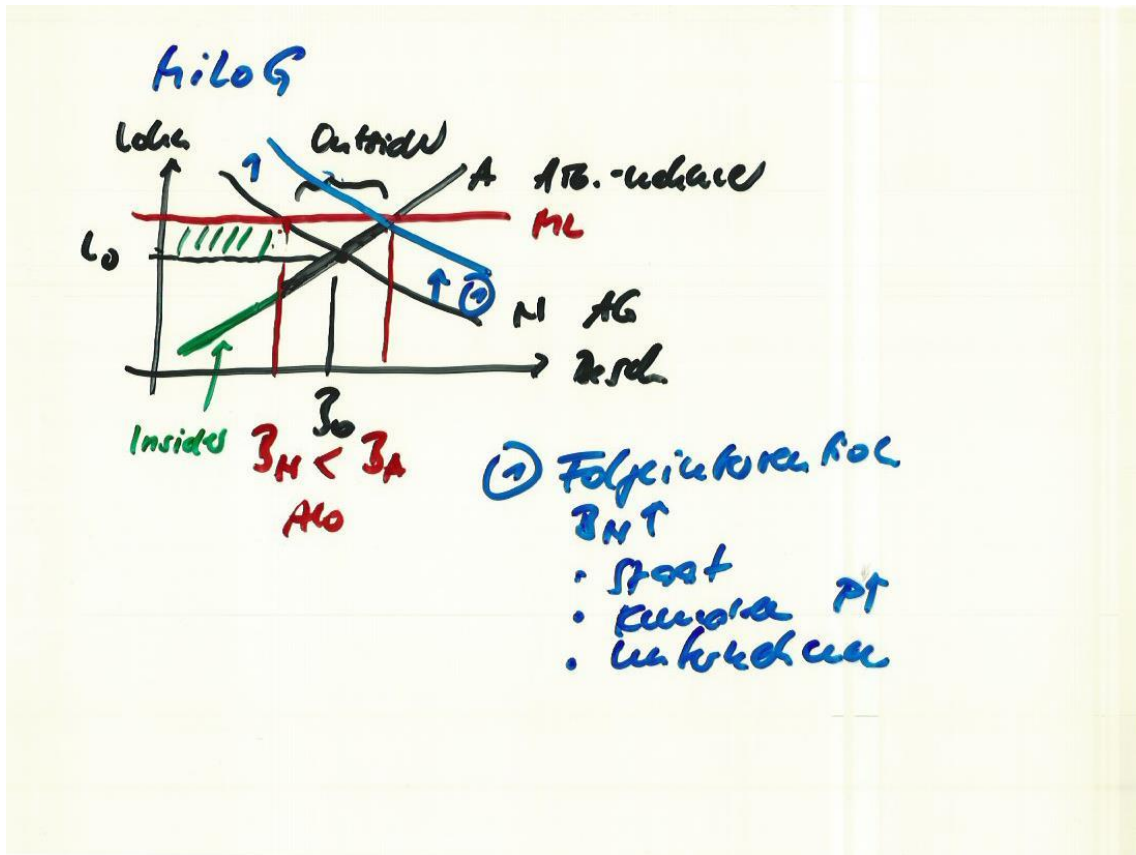 MiLoG
Lohn
Outsider
A Arb.-nehmer
ML
L₀
①
N AG
Besch.
Insider
B₀
B_N < B_A
Alo
① Folgeintervention
B_N ↑
• Staat
• Kunden P↑
• Unternehmen